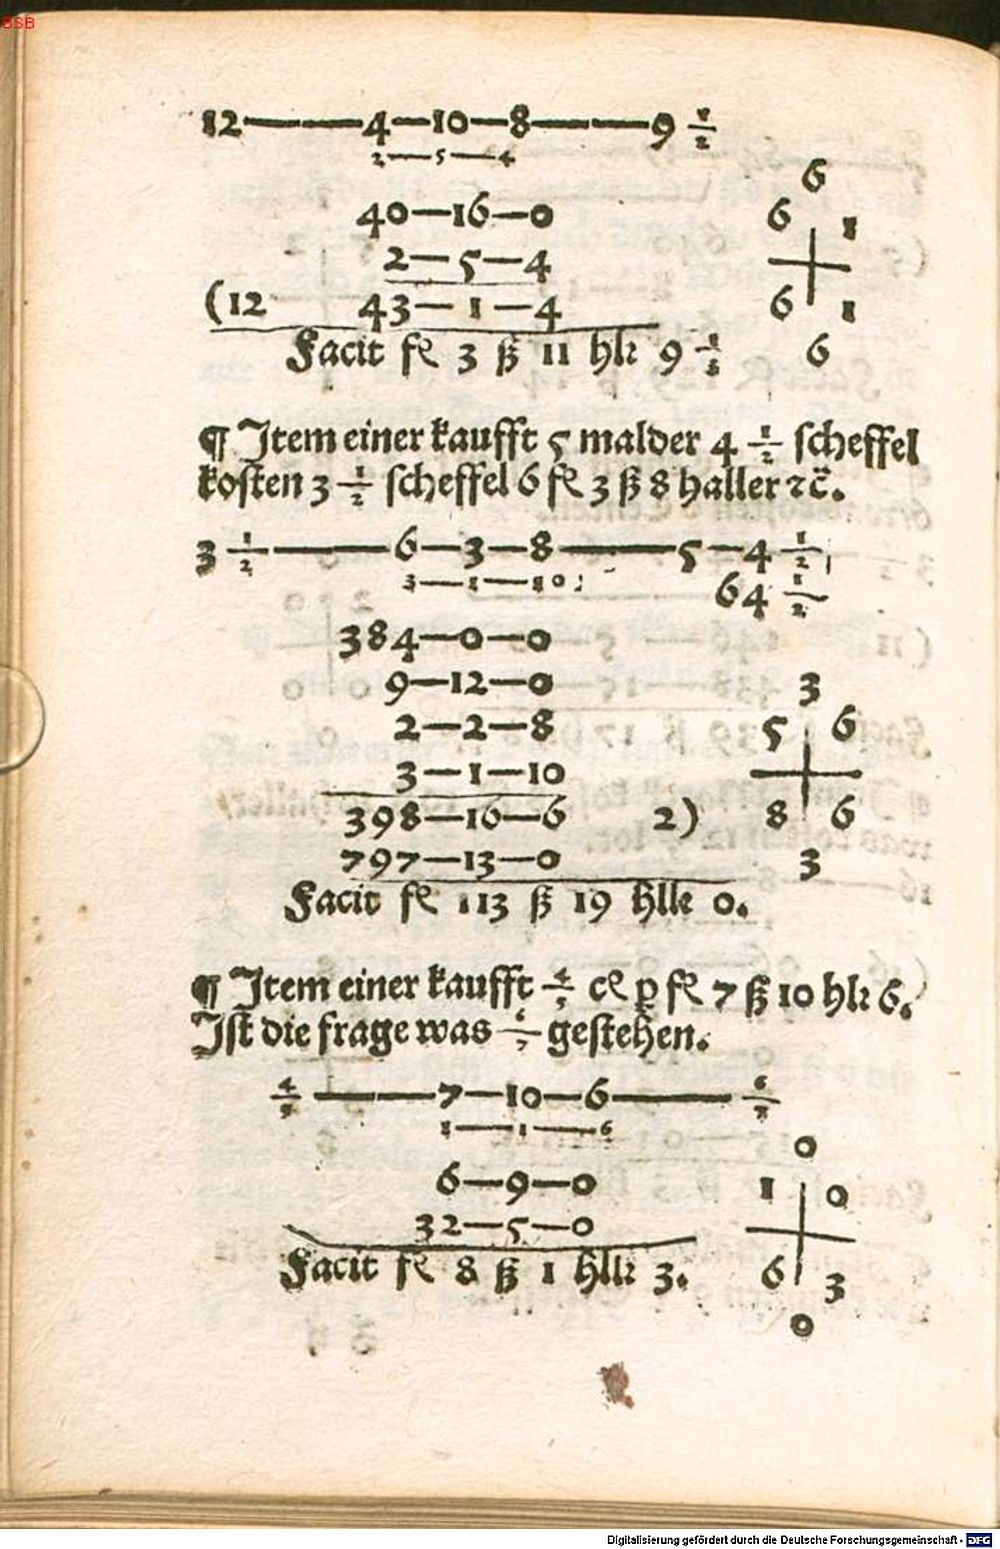 BSB
12——4—10—8——9 1/2
2—5—4
6
6 1
6 1
6
40—16—0
2—5—4
(12 43—1—4
Facit fl 3 ß 11 hlr 9 1/3
¶ Item einer kaufft 5 malder 4 1/2 scheffel
kosten 3 1/2 scheffel 6 fl 3 ß 8 haller ⁊c̄.
3 1/2——6—3—8——5—4 1/2
3—1—10 64 1/2
384—0—0
9—12—0
2—2—8
3—1—10
398—16—6 2)
797—13—0
3
5 6
8 6
3
Facit fl 113 ß 19 hllr 0.
¶ Item einer kaufft 4/5 cl ꝑ fl 7 ß 10 hlr 6.
Ist die frage was 6/7 gestehen.
4/5——7—10—6——6/7
1—1—6
6—9—0
32—5—0
0
1 0
6 3
0
Facit fl 8 ß 1 hllr 3.
Digitalisierung gefördert durch die Deutsche Forschungsgemeinschaft - DFG